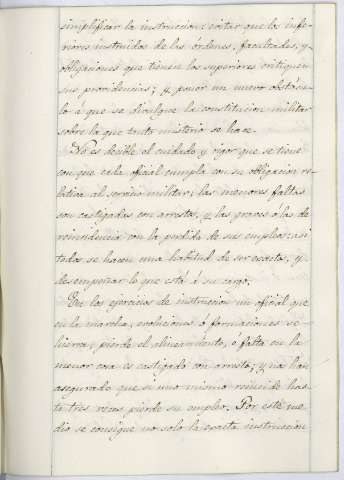 simplificar la instruccion: evitar que los infe-
riores instruidos de las órdenes, facultades, y
obligaciones que tienen los superiores critiquen
sus providencias; y poner un nuevo obstácu-
lo á que se divulgue la constitucion militar
sobre la que tanto misterio se hace.
No es decible el cuidado y rigor que se tiene
con que cada oficial cumpla con su obligacion re-
lativa al servicio militar; las menores faltas
son castigadas con arrestos, y las graves ó las de
reincidencia con la perdida de sus empleos: asi
todos se hacen una habitud de ser exactos, y
desempeñar lo que está á su cargo.
En los ejercicios de instruccion un oficial que
en la marcha, evoluciones ó formaciones se
hierra, pierde el alineamiento, ó falta en la
menor cosa es castigado con arresto; y me han
asegurado que si uno mismo reincide has-
ta tres veces pierde su empleo. Por este me-
dio se consigue no solo la exacta instruccion